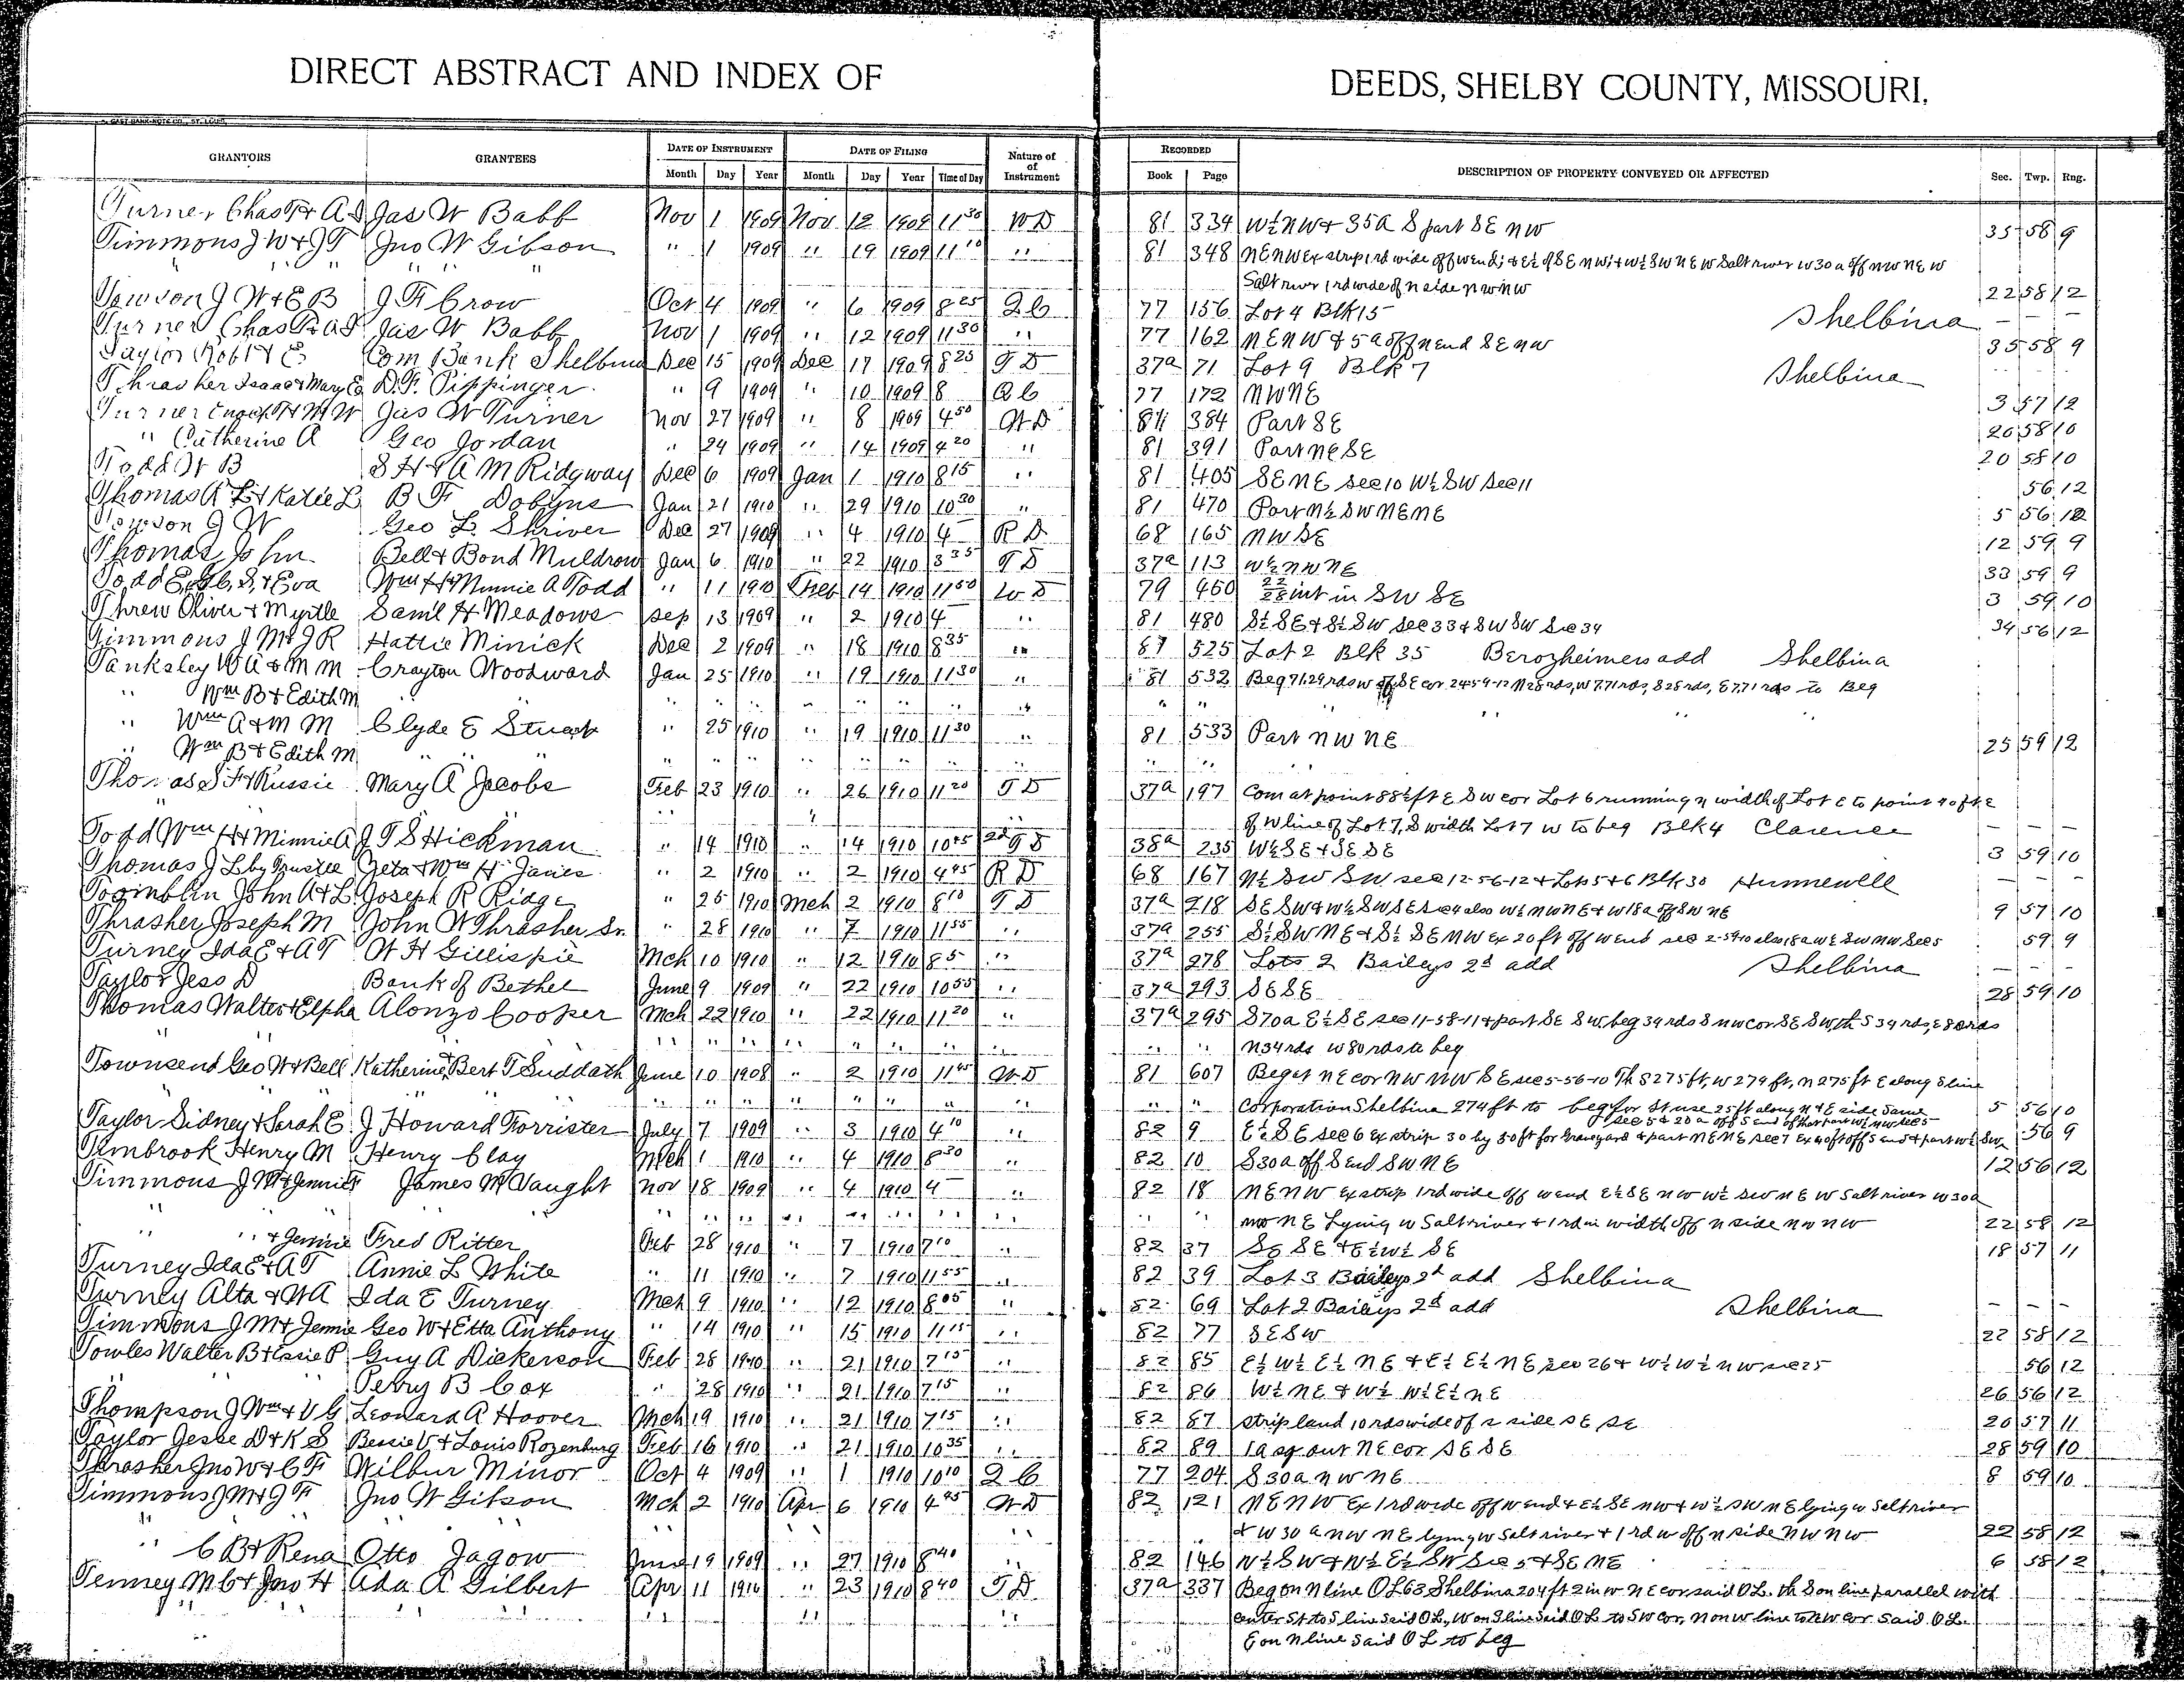 DIRECT ABSTRACT AND INDEX OF DEEDS, SHELBY COUNTY, MISSOURI.
GRANTORS GRANTEES DATE OF INSTRUMENT DATE OF FILING Nature of of Instrument RECORDED DESCRIPTION OF PROPERTY CONVEYED OR AFFECTED Sec. Twp. Rng.
Month Day Year Month Day Year Time of Day Book Page
Turner Chas Jas W Babb Nov 1 1909 Nov 12 1909 11 30 WD 81 334 W½NW & 35a S part SE NW 35 58 9
Timmons J W & J T Jno W Gibson " 1 1909 " 19 1909 11 10 " 81 348 NENW Ex strip 1rd wide off W end; & E½ of SE NW; & W½ SW NE W Salt river W 30a off NW NE W
" " " Salt river 1rd wide of N side NWNW 22 58 12
J W & E B J F Crow Oct 4 1909 " 6 1909 8 25 QC 77 156 Lot 4 Blk 15 Shelbina — — —
Turner Chas Jas W Babb Nov 1 1909 " 12 1909 11 30 " 77 162 NENW & 5a off N end SE NW 35 58 9
Taylor Robt & E Com Bank Shelbina Dec 15 1909 Dec 17 1909 8 25 TD 37a 71 Lot 9 Blk 7 Shelbina
Thrasher Isaac & Mary E D.F. Pippinger " 9 1909 " 10 1909 8 QC 77 172 NWNE 3 57 12
Turner Jas W Turner Nov 27 1909 " 8 1909 4 50 WD 81 384 Part SE 20 58 10
" Catherine A Geo Jordan " 24 1909 " 14 1909 4 20 " 81 391 Part NESE 20 58 10
Todd W B S H & A M Ridgway Dec 6 1909 Jan 1 1910 8 15 " 81 405 SENE sec 10 W½ SW Sec 11 56 12
Thomas A L & Katie L B F Dobyns Jan 21 1910 " 29 1910 10 30 " 81 470 Part N½ SW NENE 5 56 12
J W Geo L Shriver Dec 27 1909 " 4 1910 4 — RD 68 165 NWSE 12 59 9
Thomas John Bell & Bond Muldrow Jan 6 1910 " 22 1910 3 35 TD 37a 113 W½NWNE 33 59 9
Todd & Eva Wm H & Minnie A Todd " 11 1910 Feb 14 1910 11 50 WD 79 460 int in SW SE 3 59 10
Threw Oliver & Myrtle Saml H Meadows Sep 13 1909 " 2 1910 4 — " 81 480 S½ SE & S½ SW Sec 33 & SW SW Sec 34 34 56 12
Timmons J M & J R Hattie Minick Dec 2 1909 " 18 1910 8 35 " 81 525 Lot 2 Blk 35 Berozheimers add Shelbina
Tanksley W A & M M Crayton Woodward Jan 25 1910 " 19 1910 11 30 " 81 532 Beg 71.29 rds W of SE cor 24-59-12 N 28 rds, W 7.71 rds, S 28 rds, E 7.71 rds to Beg
" Wm B & Edith M " " " " " " "
" Wm A & M M Clyde E Stuart " 25 1910 " 19 1910 11 30 " 81 533 Part NW NE 25 59 12
" Wm B & Edith M " " " " " " " "
Thomas S F & Russie Mary A Jacobs Feb 23 1910 " 26 1910 11 20 TD 37a 197 Com at point 88½ ft E SW cor Lot 6 running N width of Lot E to point 40 ft E
" " " of W line of Lot 7, S width Lot 7 W to beg Blk 4 Clarence — — —
Todd Wm H & Minnie A J T S Hickman " 14 1910 " 14 1910 10 45 2d TD 38a 235 W½SE & SE SE 3 59 10
Thomas J L by Trustee Zeta & Wm H Janes " 2 1910 " 2 1910 4 45 RD 68 167 N½ SW SW sec 12-56-12 & Lots 5 & 6 Blk 30 Hunnewell — — —
John A & L Joseph R Ridge " 25 1910 Mch 2 1910 8 10 TD 37a 218 SE SW & W½ SW SE Sec 4 also W½ NWNE & W 18a off SW NE 9 57 10
Thrasher Joseph M John W Thrasher Sr. " 28 1910 " 7 1910 11 55 " 37a 255 S½ SW NE & S½ SE NW ex 20 ft off W end sec 2-59-10 also 18a W½ SW NW Sec 5 59 9
Turney Ida E & A T W H Gillispie Mch 10 1910 " 12 1910 8 5 " 37a 278 Lots 2 Baileys 2d add Shelbina — — —
Taylor Jess D Bank of Bethel June 9 1909 " 22 1910 10 55 " 37a 293 SESE 28 59 10
Thomas Walter & Elpha Alonzo Cooper Mch 22 1910 " 22 1910 11 20 " 37a 295 S 70a E½ SE sec 11-58-11 & part SE SW, beg 34 rds S NW cor SE SW, th S 34 rds, E 80 rds
" " " " " " " " " N 34 rds W 80 rds to beg
Townsend Geo W & Bell Katherine & Bert T Suddath June 10 1908 " 2 1910 11 45 WD 81 607 Beg at NE cor NW NW SE sec 5-56-10 Th S 275 ft, W 279 ft, N 275 ft E along S line
" " " " " " " " " Corporation Shelbina 274 ft to beg for St use 25 ft along N & E side same 5 56 10
Taylor Sidney & Sarah E J Howard Forrister July 7 1909 " 3 1910 4 10 " 82 9 E½ SE sec 6 Ex strip 30 by 50 ft for Graveyard & part NENE sec 7 Ex 40 ft off S end & part W½ SW sec 5 & 20 a off S end of that part W½ NW sec 5 56 9
Timbrook Henry M Henry Clay Mch 1 1910 " 4 1910 8 30 " 82 10 S 30a off S end SW NE 12 56 12
Timmons J M & Jennie James M Vaught Nov 18 1909 " 4 1910 4 — " 82 18 NENW Ex strip 1rd wide off W end E½ SE NW W½ SW NE W Salt river W 30a
" " " " " " " " " NW NE Lying W Salt river & 1 rd in width off N side NW NW 22 58 12
" " & Jennie Fred Ritter Feb 28 1910 " 7 1910 7 10 " 82 37 SE SE & E½ W½ SE 18 57 11
Turney Ida E & A T Annie L White " 11 1910 " 7 1910 11 55 " 82 39 Lot 3 Baileys 2d add Shelbina
Turney Alta & W A Ida E Turney Mch 9 1910 " 12 1910 8 05 " 82 69 Lot 2 Baileys 2d add Shelbina — — —
Timmons J M & Jennie Geo W & Etta Anthony " 14 1910 " 15 1910 11 15 " 82 77 SESW 22 58 12
Towles Walter B & Essie P Guy A Dickerson Feb 28 1910 " 21 1910 7 15 " 82 85 E½ W½ E½ NE & E½ E½ NE sec 26 & W½ W½ NW sec 25 56 12
" " Perry B Cox " 28 1910 " 21 1910 7 15 " 82 86 W½ NE & W½ W½ E½ NE 26 56 12
Thompson J Wm & V G Leonard A Hoover Mch 19 1910 " 21 1910 7 15 " 82 87 strip land 10 rds wide of side SE SE 20 57 11
Taylor Jesse D & K S Bessie V & Louis Rozenburg Feb 16 1910 " 21 1910 10 35 " 82 89 1a sq out NE cor SE SE 28 59 10
Thrasher Jno W & C F Wilbur Minor Oct 4 1909 " 1 1910 10 10 QC 77 204 S 30a NW NE 8 59 10
Timmons J M & J F Jno W Gibson Mch 2 1910 Apr 6 1910 4 45 WD 82 121 NENW Ex 1rd wide off W end & E½ SE NW & W½ SW NE lying W Salt river
" " " " & W 30 a NW NE lying W Salt river & 1 rd W off N side NW NW 22 58 12
" C B & Rena Otto Jagow June 19 1909 " 27 1910 8 40 " 82 146 N½ SW & N½ E½ SW Sec 5 & SE NE 6 58 12
Tenney M C & Jno H Ada A Gilbert Apr 11 1910 " 23 1910 8 40 TD 37a 337 Beg on N line OL 63 Shelbina 204 ft 2 in W NE cor said OL. th S on line parallel with
" " " " center St to S line said OL, W on S line said OL to SW cor, N on W line to NW cor said OL.
E on N line said OL to beg